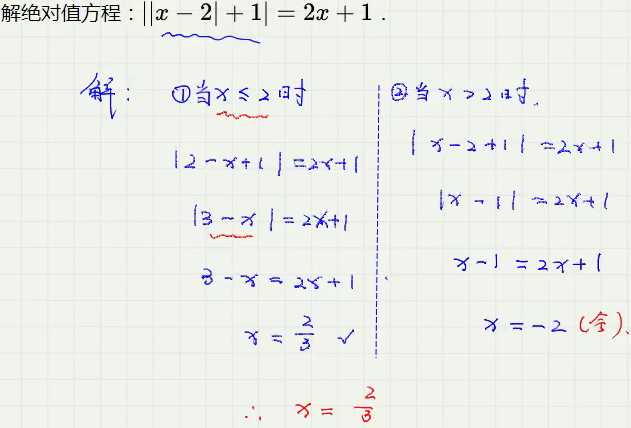 解绝对值方程：||x − 2| + 1| = 2x + 1．
解：
①当 x ≤ 2 时
|2 − x + 1| = 2x + 1
|3 − x| = 2x + 1
3 − x = 2x + 1
x = 2/3 ✓
②当 x > 2 时．
|x − 2 + 1| = 2x + 1
|x − 1| = 2x + 1
x − 1 = 2x + 1
x = −2 (舍)．
∴ x = 2/3